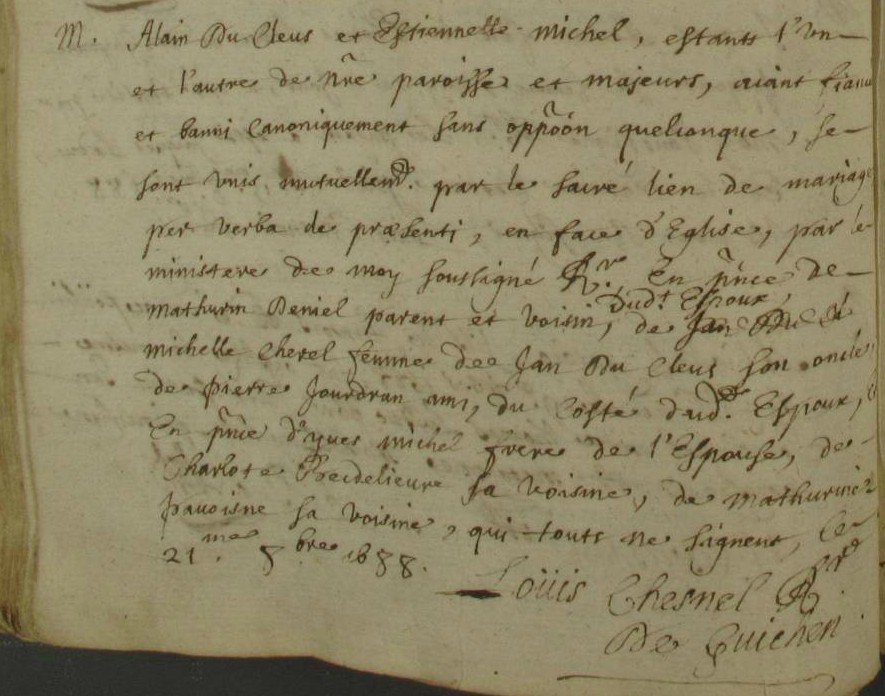 M. Alain Du Cleus et Estiennette michel, estants l'vn
et l'autre de nr̃e paroisse et majeurs, aiant fiancé
et banni Canoniquement sans oppõon quelconque, se
sont vnis mutuellemt. par le sacré lien de mariage
per verba de præsenti, en face d'Eglise, par le
ministere de moy soussigné Rr. En pñce de
mathurin Deniel parent et voisin, dudt. Espoux, de
michelle Cherel femme de Jan Du Cleus son oncle
de Pierre Jourdran ami, du Costé dud. Espoux,
En pñce d'yues michel frere de l'Espouse, de
Charlote sa voisine, de mathurine
pauoisne sa voisine, qui touts ne signent, le
21me. 8bre 1688.
Loüis Chesnel Rr
De Guichen.